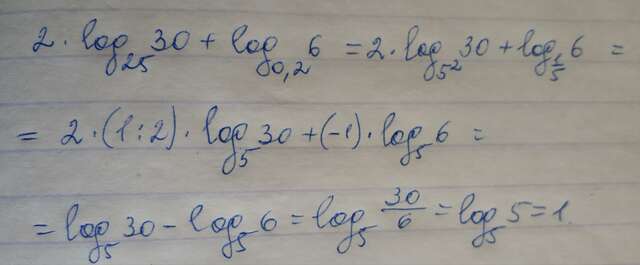 2 · log₂₅ 30 + log₀,₂ 6 = 2 · log₅² 30 + log_{1/5} 6 =
= 2 · (1:2) · log₅ 30 + (-1) · log₅ 6 =
= log₅ 30 - log₅ 6 = log₅ 30/6 = log₅ 5 = 1